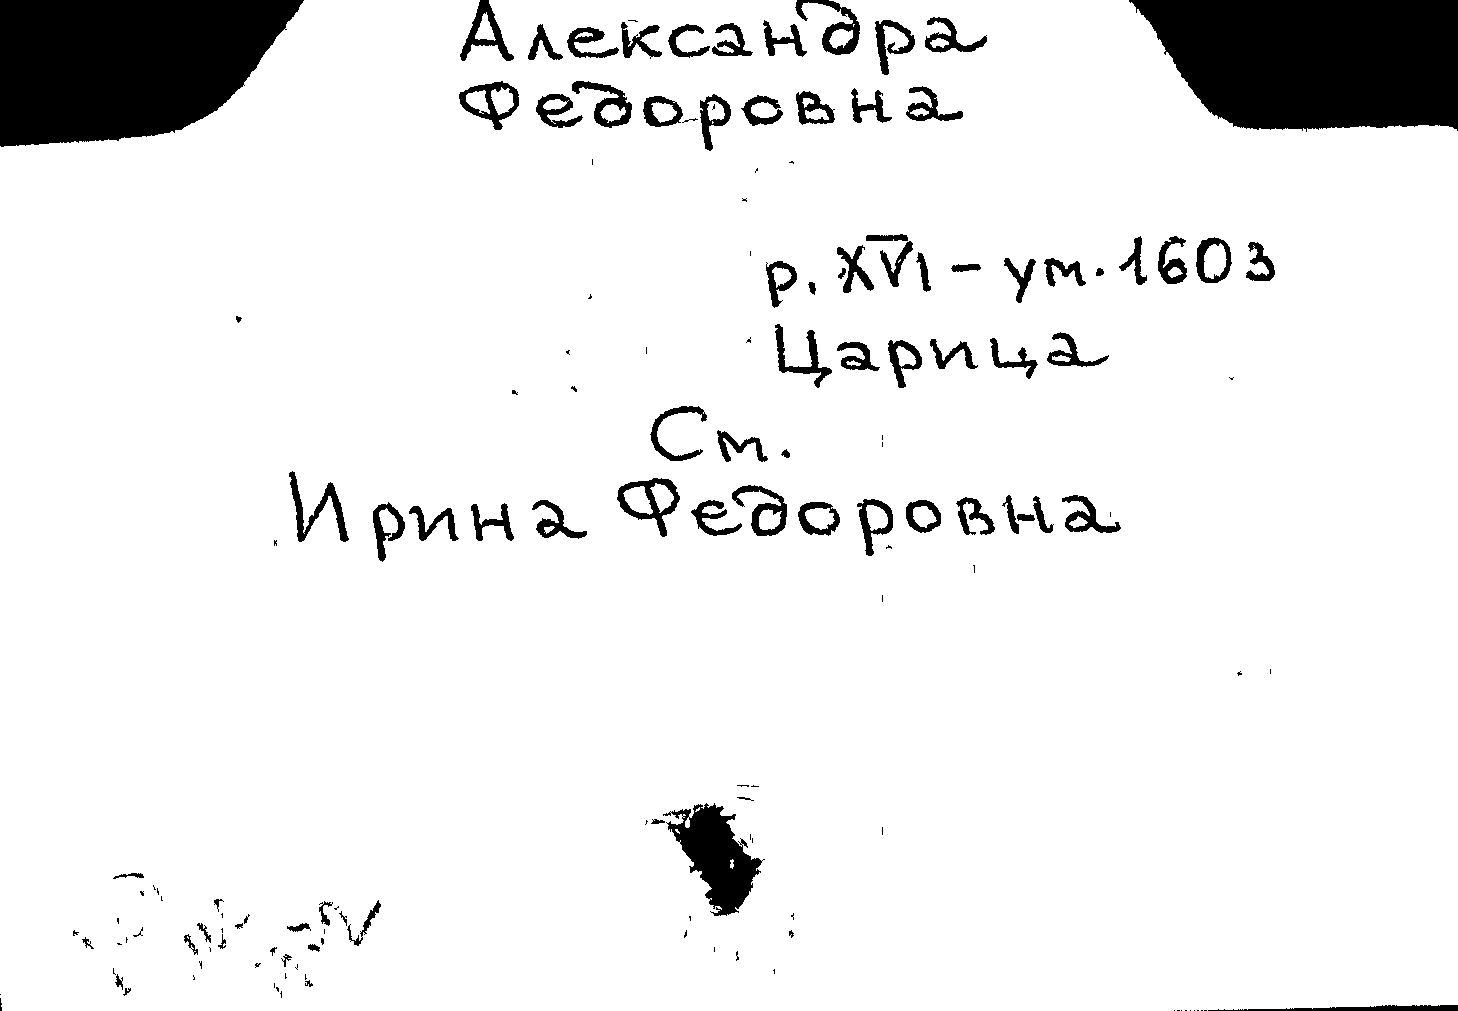 Александра
Федоровна
р. XVI - ум. 1603
Царица
См.
Ирина Федоровна